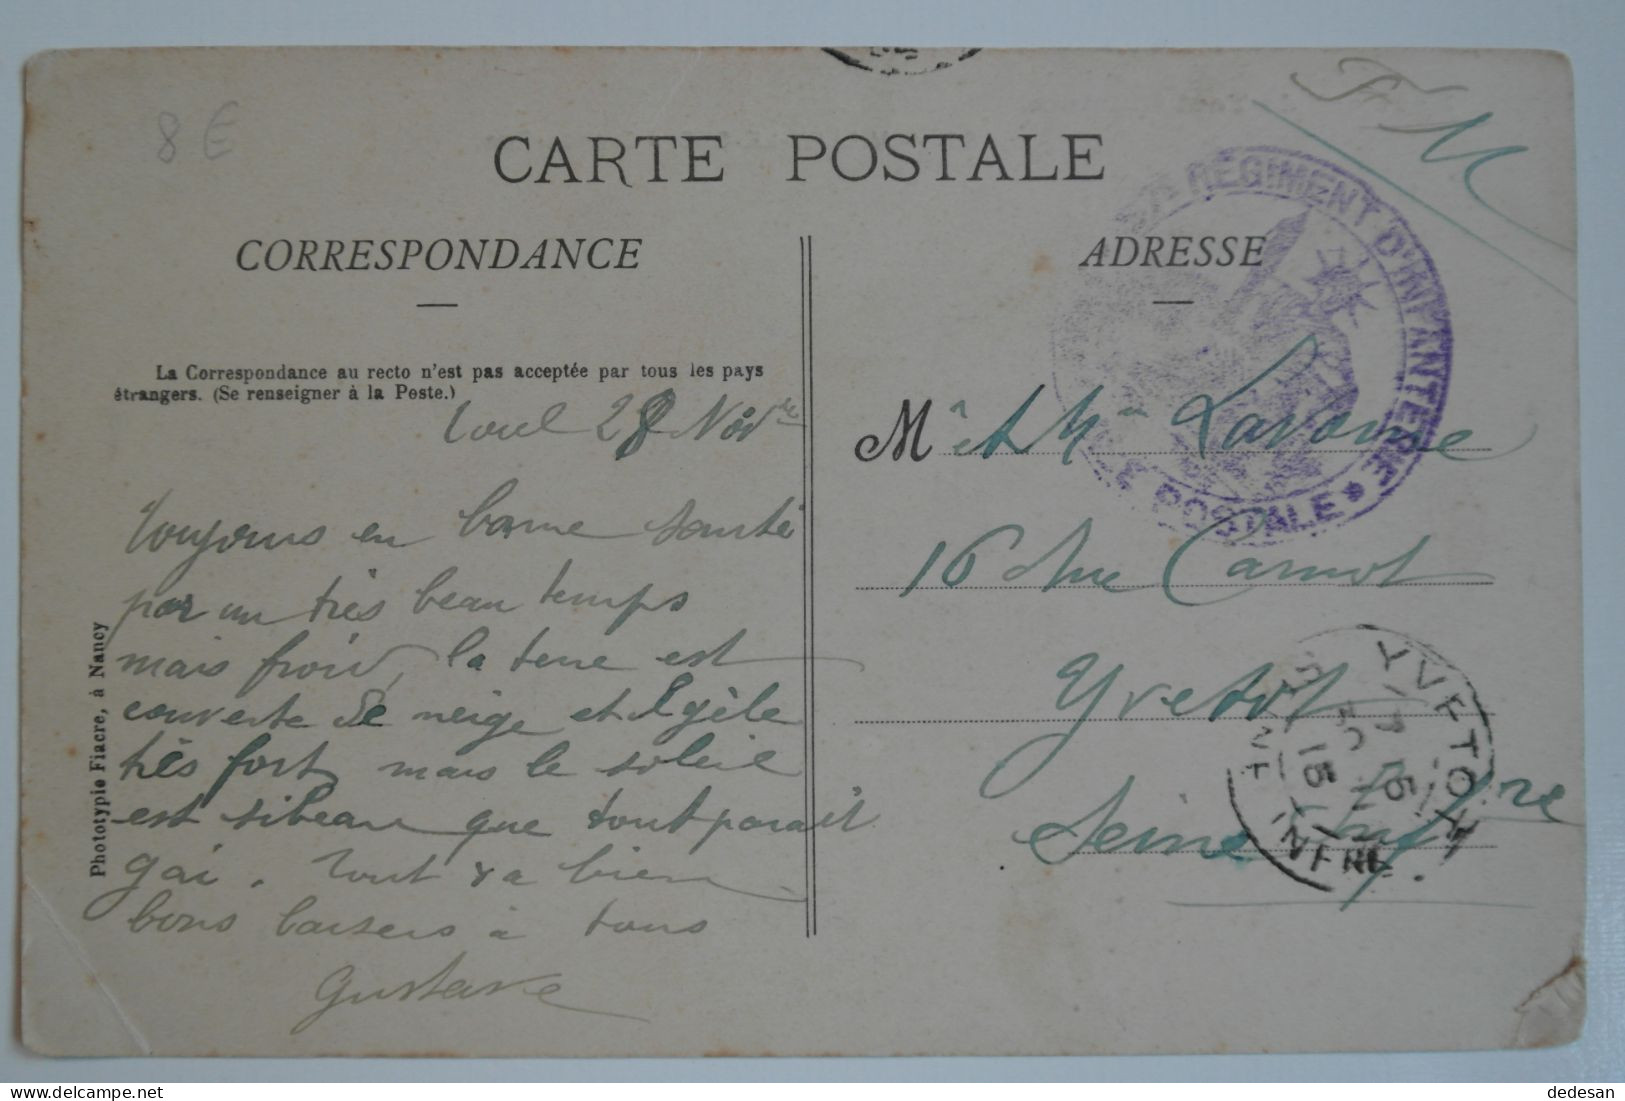 8 €
CARTE POSTALE
F M
RÉGIMENT D'INFANTERIE
POSTALE
CORRESPONDANCE
La Correspondance au recto n'est pas acceptée par tous les pays
étrangers. (Se renseigner à la Poste.)
Toul 28 Novbre
Toujours en bonne santé
par un très beau temps
mais froid, la terre est
couverte de neige et il gèle
très fort, mais le soleil
est si beau que tout parait
gai. Tout va bien
bons baisers à tous
Gustave
Phototypie Fiacre, à Nancy
ADRESSE
M et Mme
16 Rue Carnot
Yvetot
Seine Infre
YVETOT
SEINE INFRE
dedesan